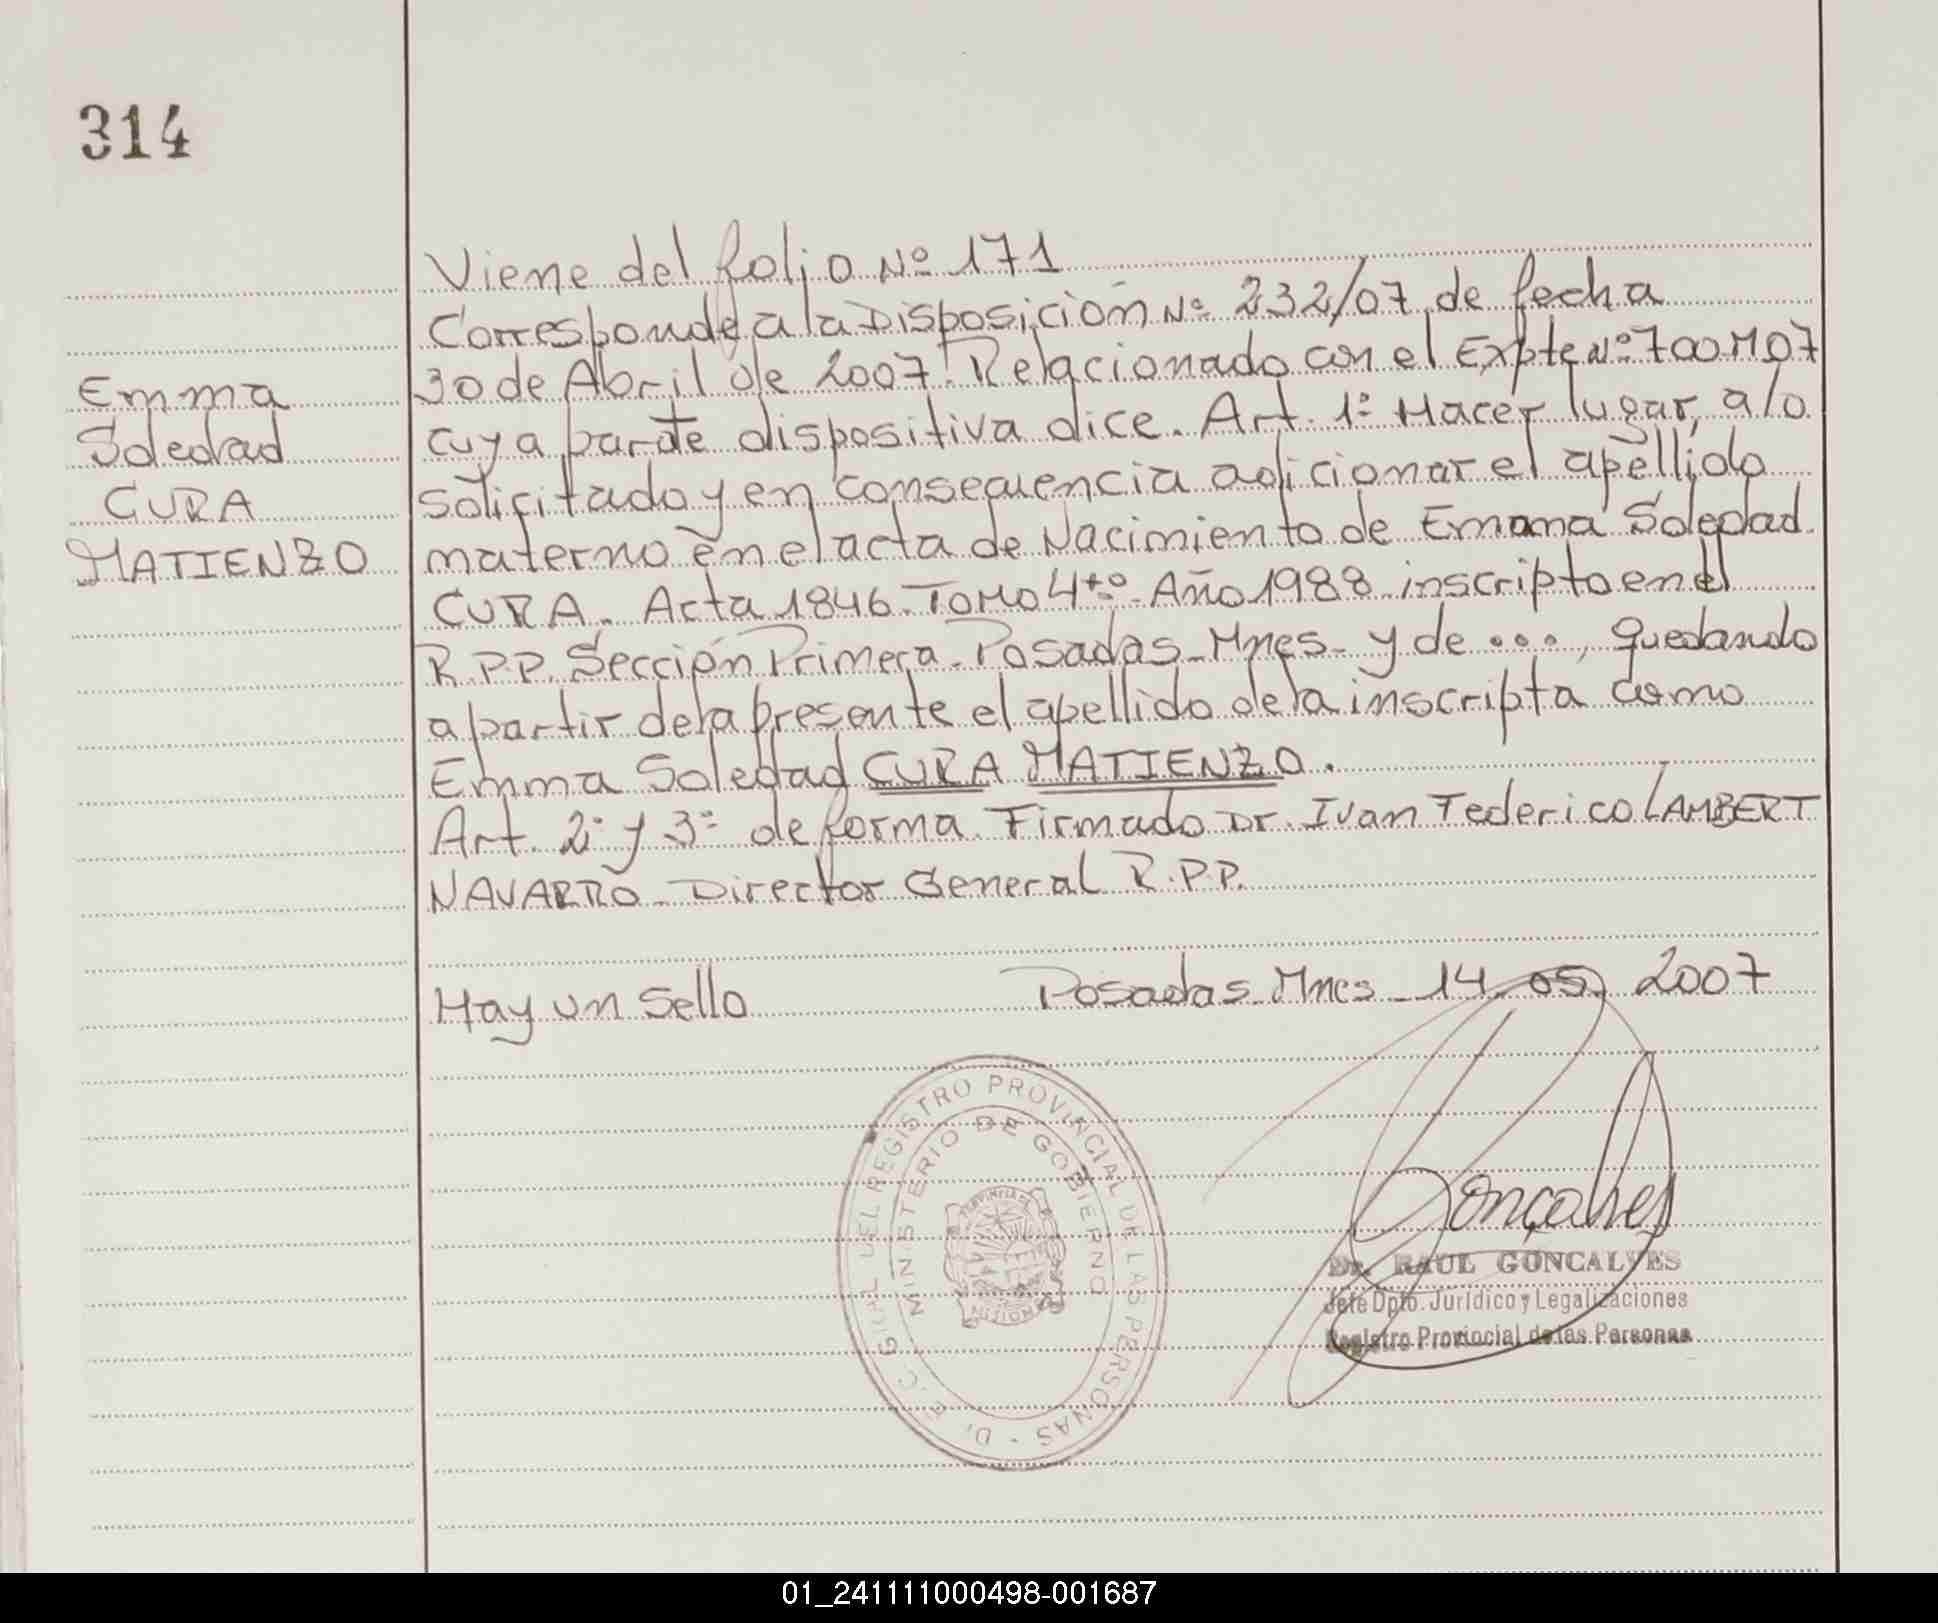 314
Emma
Soledad
CURA
MATIENZO
Viene del folio Nº 171
Corresponde a la Disposición Nº 232/07 de fecha
30 de Abril de 2007. Relacionado con el Expte Nº 700M07
cuya parte dispositiva dice. Art. 1º Hacer lugar, a lo
solicitado y en consecuencia adicionar el apellido
materno en el acta de Nacimiento de Emma Soledad
CURA. Acta 1846. Tomo 4to. Año 1988 inscripto en el
R.P.P. Sección Primera. Posadas_Mnes_ y de ..., quedando
a partir de la presente el apellido de la inscripta como
Emma Soledad CURA MATIENZO.
Art. 2º y 3º de forma. Firmado Dr. Ivan Federico LAMBERT
NAVARRO_ Director General R.P.P.
Hay un Sello
Posadas_Mnes_14.05.2007
REGISTRO PROVINCIAL DE LAS PERSONAS
MINISTERIO DE GOBIERNO
Gonçalves
Dr. RAUL GONCALVES
Jefe Dpto. Jurídico y Legalizaciones
Registro Provincial de las Personas
01_241111000498-001687